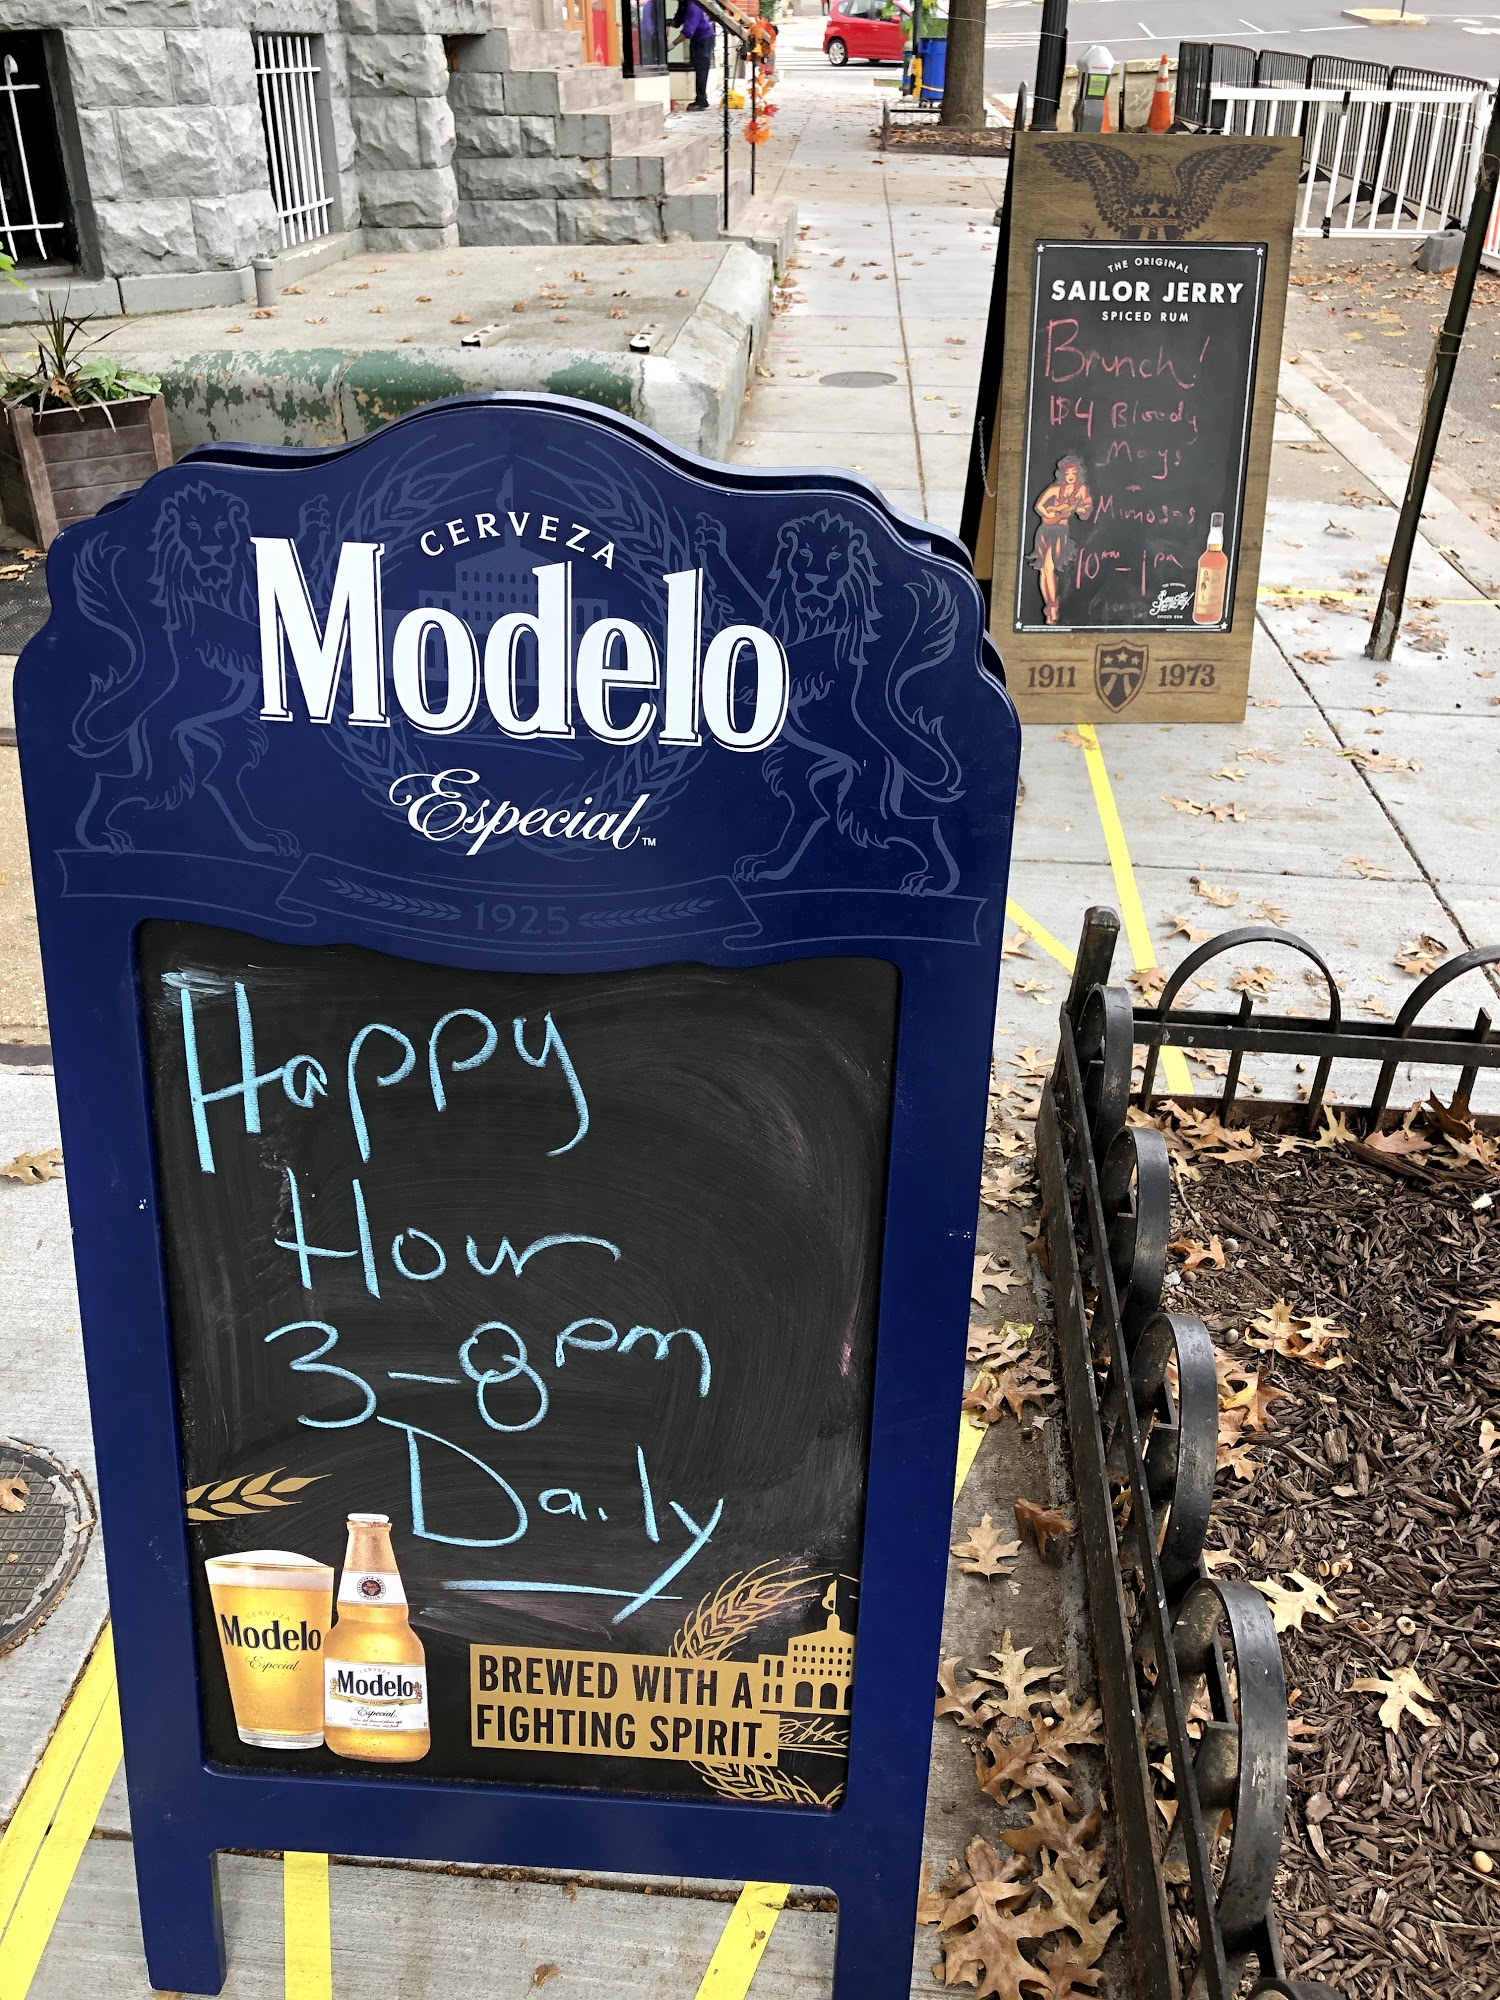 CERVEZA
Modelo
Especial™
1925
Happy
Hour
3-8pm
Daily
CERVEZA
Modelo
Especial
CERVEZA
Modelo
Especial
BREWED WITH A
FIGHTING SPIRIT.
THE ORIGINAL
SAILOR JERRY
SPICED RUM
Brunch!
$4 Bloody
Marys
-
Mimosas
10am-1pm
THE ORIGINAL
SAILOR
JERRY
SPICED RUM
1911 1973